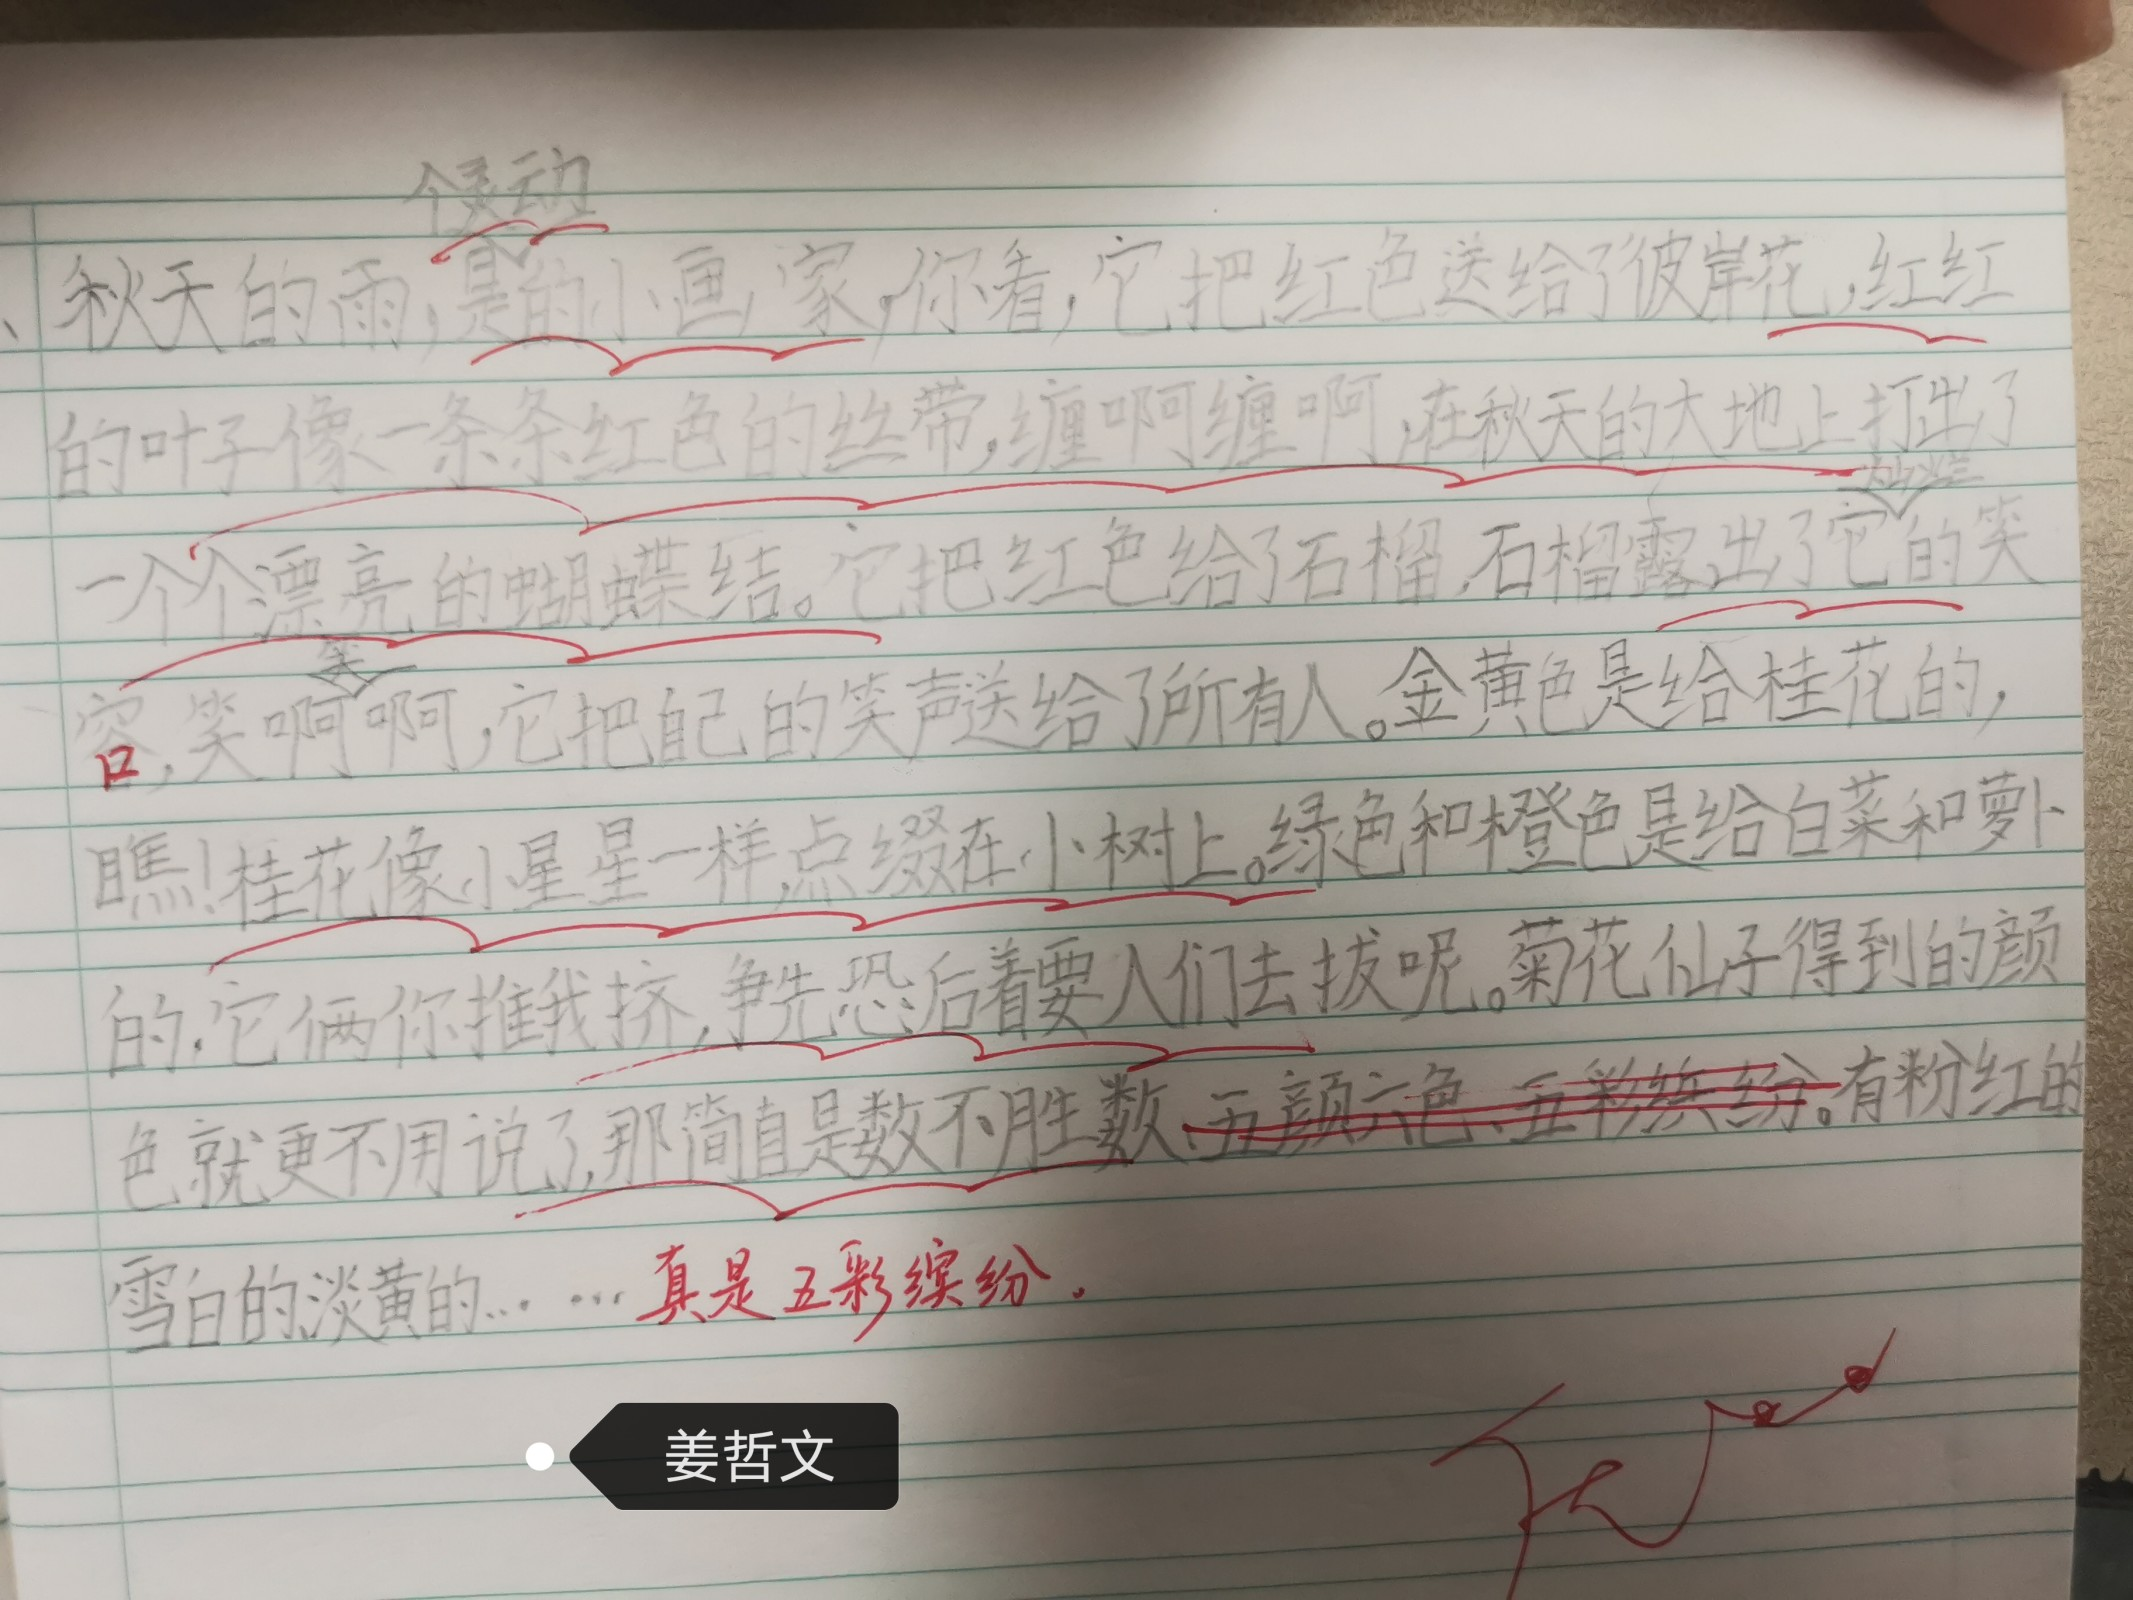 秋天的雨,是的小画家,你看,它把红色送给了彼岸花,红红
的叶子像一条条红色的丝带,缠啊缠啊,在秋天的大地上打出了
一个个漂亮的蝴蝶结。它把红色给了石榴,石榴露出了它的笑
笑
容,笑啊啊,它把自己的笑声送给了所有人。金黄色是给桂花的,
瞧!桂花像小星星一样,点缀在小树上。绿色和橙色是给白菜和萝卜
的,它俩你推我挤,争先恐后着要人们去拔呢。菊花仙子得到的颜
色就更不用说了,那简直是数不胜数、五颜六色、五彩缤纷。有粉红的
雪白的、淡黄的……真是五彩缤纷.
姜哲文